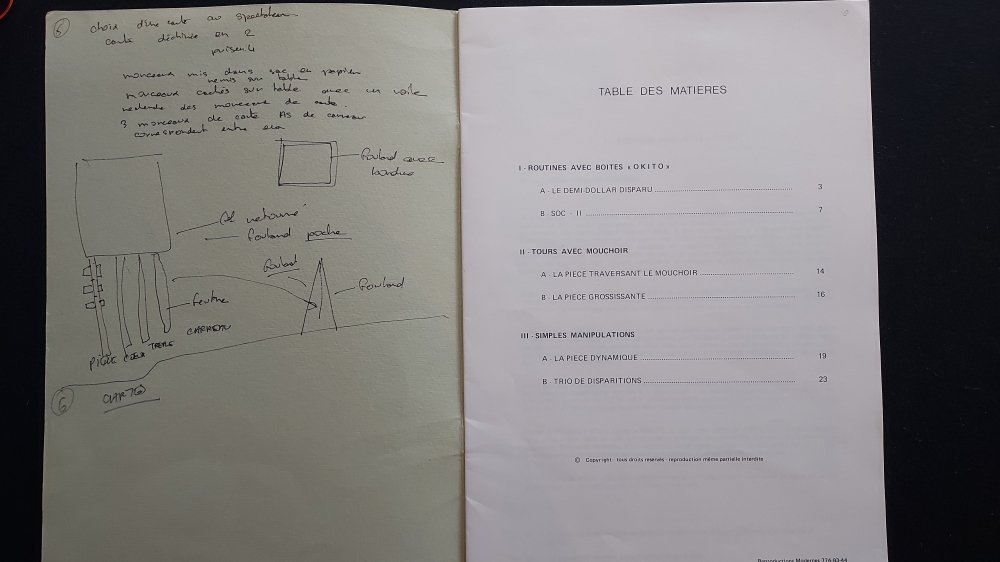 6 choix d'une carte au spectateur
carte déchirée en 2
puis en 4
morceaux mis dans sac en papier
remis sur table
morceaux cachés sur table avec un voile
des morceaux de carte.
3 morceaux de carte AS de carreau
correspondent entre eux
foulard avec
retourné
foulard poche
foulard
foulard
feutre
PIQUE CŒUR TREFLE CARREAU
6
TABLE DES MATIERES
I - ROUTINES AVEC BOITES « OKITO »
A - LE DEMI-DOLLAR DISPARU 3
B - SOC - II 7
II - TOURS AVEC MOUCHOIR
A - LA PIECE TRAVERSANT LE MOUCHOIR 14
B - LA PIECE GROSSISSANTE 16
III - SIMPLES MANIPULATIONS
A - LA PIECE DYNAMIQUE 19
B - TRIO DE DISPARITIONS 23
© Copyright - tous droits réservés - reproduction même partielle interdite
Reproductions Modernes 774-93-44